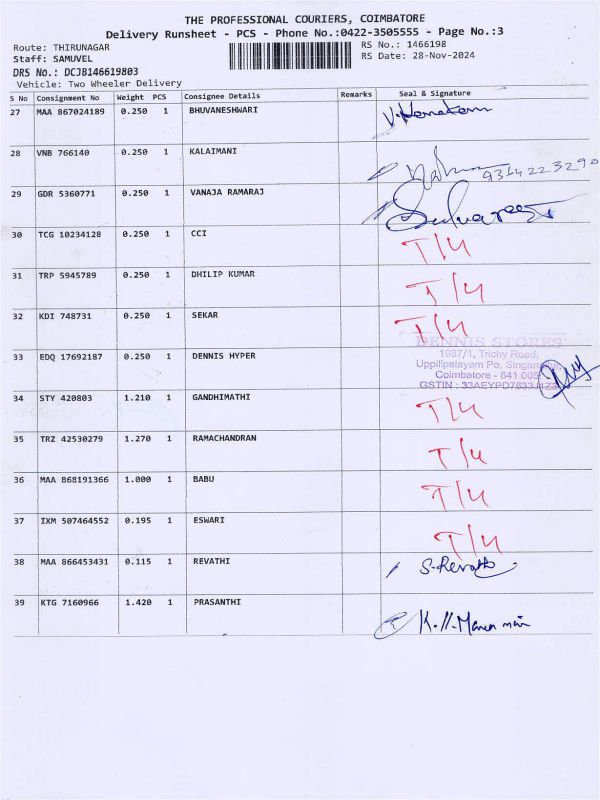 THE PROFESSIONAL COURIERS, COIMBATORE
Delivery Runsheet - PCS - Phone No.:0422-3505555 - Page No.:3
Route: THIRUNAGAR
RS No.: 1466198
Staff: SAMUVEL
RS Date: 28-Nov-2024
DRS No.: DCJB146619803
Vehicle: Two Wheeler Delivery
S No Consignment No Weight PCS Consignee Details Remarks Seal & Signature
27 MAA 867024189 0.250 1 BHUVANESHWARI
28 VNB 766140 0.250 1 KALAIMANI
9364223290
29 GDR 5360771 0.250 1 VANAJA RAMARAJ
30 TCG 10234128 0.250 1 CCI T/4
31 TRP 5945789 0.250 1 DHILIP KUMAR T/4
32 KDI 748731 0.250 1 SEKAR T/4
DENNIS STORES
1987/1, Trichy Road,
33 EDQ 17692187 0.250 1 DENNIS HYPER
Uppilipalayam Po,
Coimbatore - 641 005
GSTIN :
34 STY 420803 1.210 1 GANDHIMATHI T/4
35 TRZ 42530279 1.270 1 RAMACHANDRAN T/4
36 MAA 868191366 1.000 1 BABU T/4
37 IXM 507464552 0.195 1 ESWARI T/4
38 MAA 866453431 0.115 1 REVATHI S.Revathi
39 KTG 7160966 1.420 1 PRASANTHI